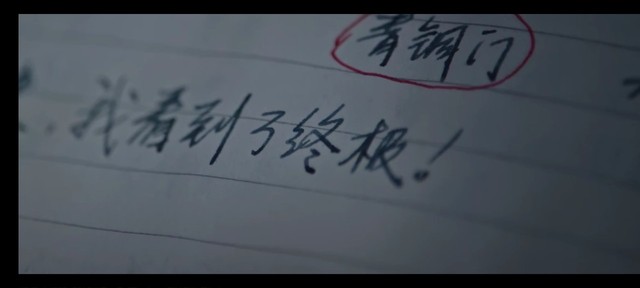 青铜门
我看到了终极！